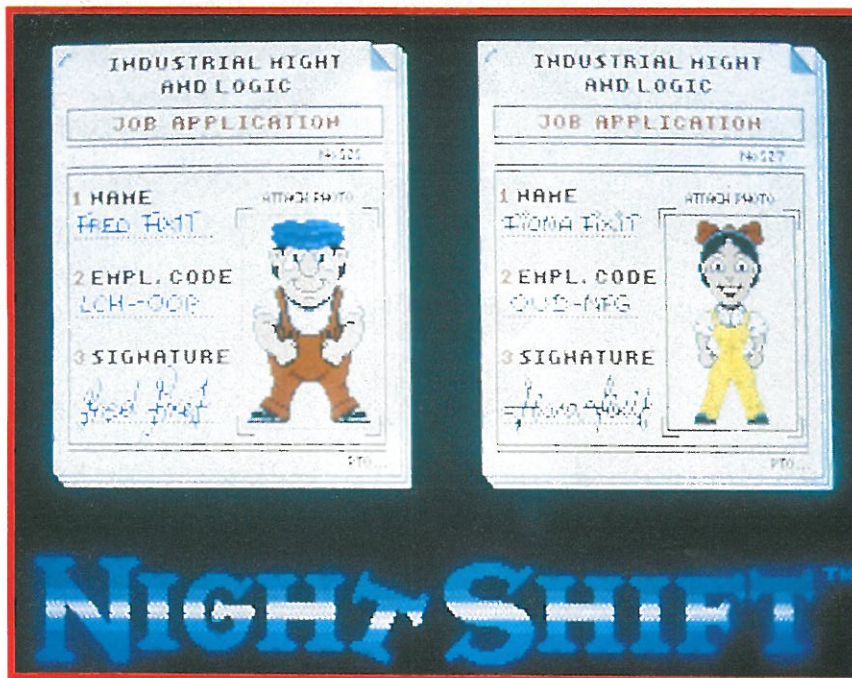 INDUSTRIAL MIGHT
AND LOGIC
JOB APPLICATION
1 NAME
FRED FIXIT
ATTACH PHOTO
2 EMPL. CODE
3 SIGNATURE
PTO...
INDUSTRIAL MIGHT
AND LOGIC
JOB APPLICATION
No 527
1 NAME
FIONA FIXIT
ATTACH PHOTO
2 EMPL. CODE
3 SIGNATURE
PTO...
NIGHT SHIFT™